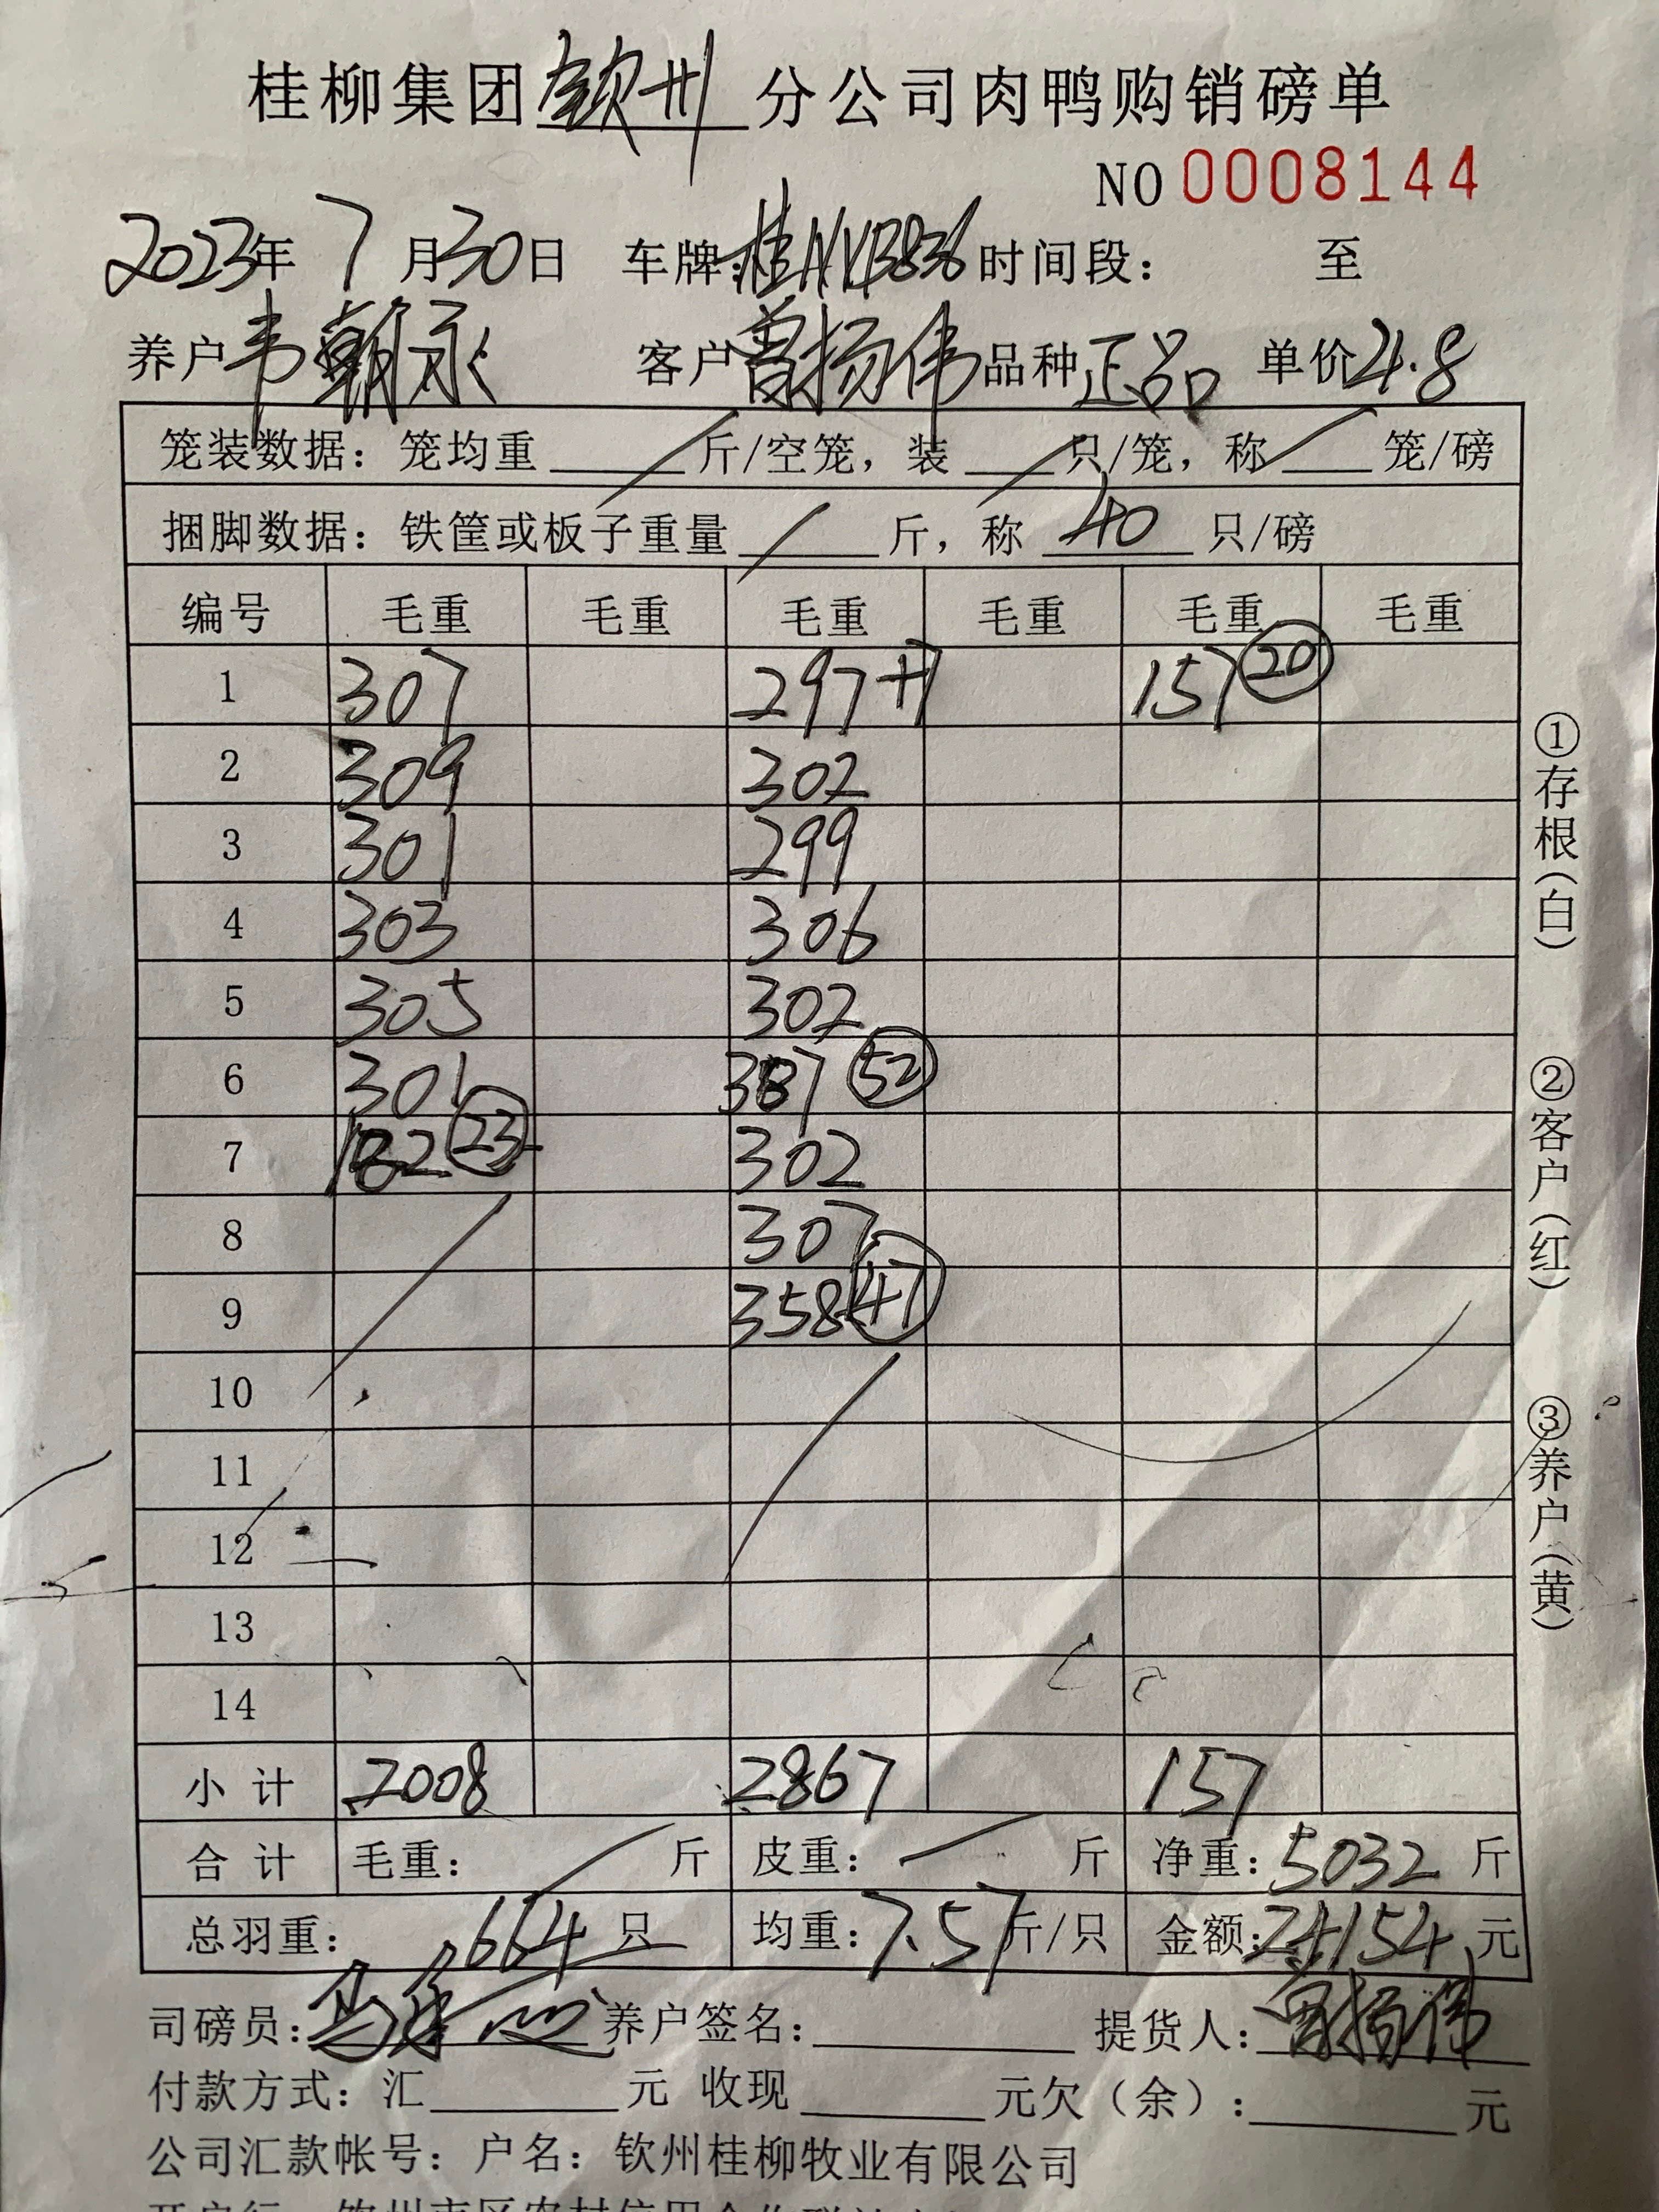 桂柳集团钦州分公司肉鸭购销磅单
NO 0008144
2023年 7月30日 车牌:桂NYB836 时间段: 至
养户韦朝永 客户曾扬伟 品种正品 单价4.8
笼装数据:笼均重____斤/空笼,装____只/笼,称____笼/磅
捆脚数据:铁筐或板子重量____斤,称 40 只/磅
编号 毛重 毛重 毛重 毛重 毛重 毛重
1 307 297+7 157 20
2 309 302
3 301 299
4 303 306
5 305 302
6 301 387 52
7 182 23 302
8 307
9 358 47
10
11
12
13
14
小计 2008 2867 157
合计 毛重: 斤 皮重: 斤 净重:5032斤
总羽重: 664只 均重:7.57斤/只 金额:24154元
司磅员: 养户签名: 提货人:曾扬伟
付款方式:汇____元 收现____元欠(余):____元
公司汇款帐号:户名:钦州桂柳牧业有限公司
①存根(白)
②客户(红)
③养户(黄)